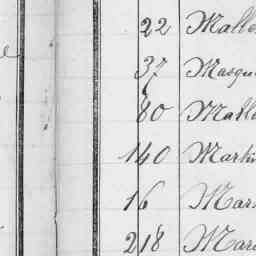 22 Malle
37 Masque
80 Marlo
140 Martin
16 Mar
218 Mar